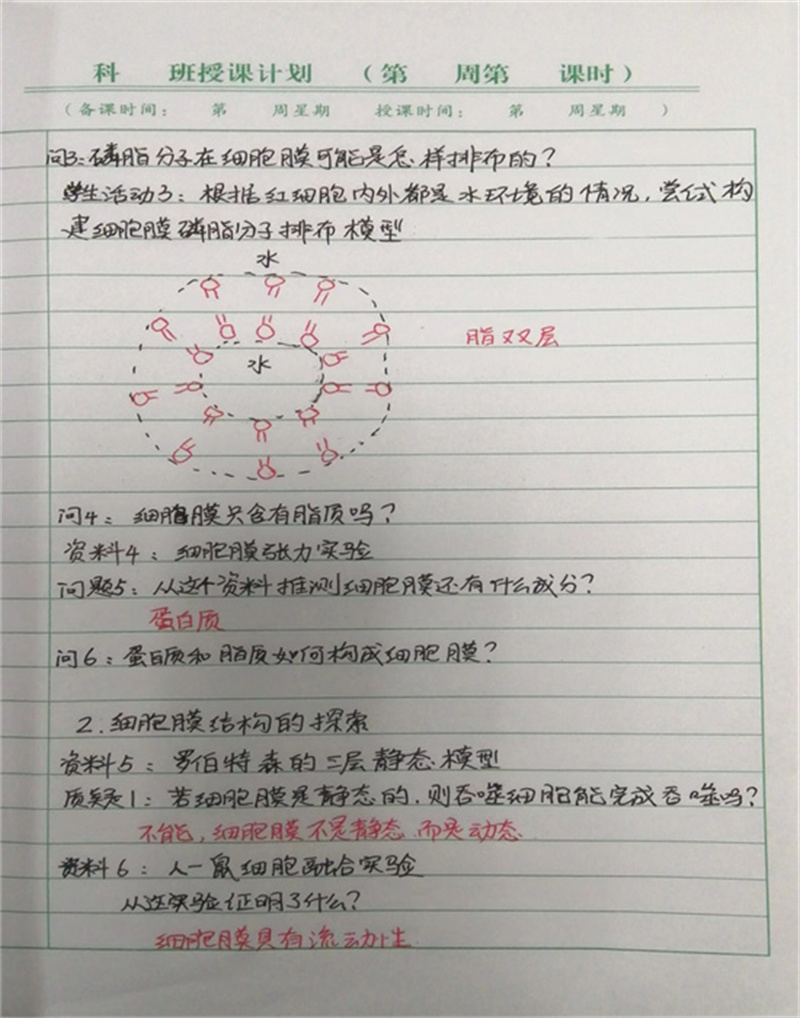 科 班授课计划 （第 周第 课时）
（备课时间： 第 周星期 授课时间： 第 周星期 ）
问3:磷脂分子在细胞膜可能是怎样排布的?
学生活动3：根据红细胞内外都是水环境的情况，尝试构
建细胞膜磷脂分子排布模型
水
脂双层
水
问4：细胞膜只含有脂质吗？
资料4：细胞膜张力实验
问题5：从这个资料推测细胞膜还有什么成分？
蛋白质
问6：蛋白质和脂质如何构成细胞膜？
2.细胞膜结构的探索
资料5：罗伯特森的三层静态模型
质疑1：若细胞膜是静态的，则吞噬细胞能完成吞噬吗？
不能，细胞膜不是静态而是动态
资料6：人一鼠细胞融合实验
从这实验证明了什么？
细胞膜具有流动性